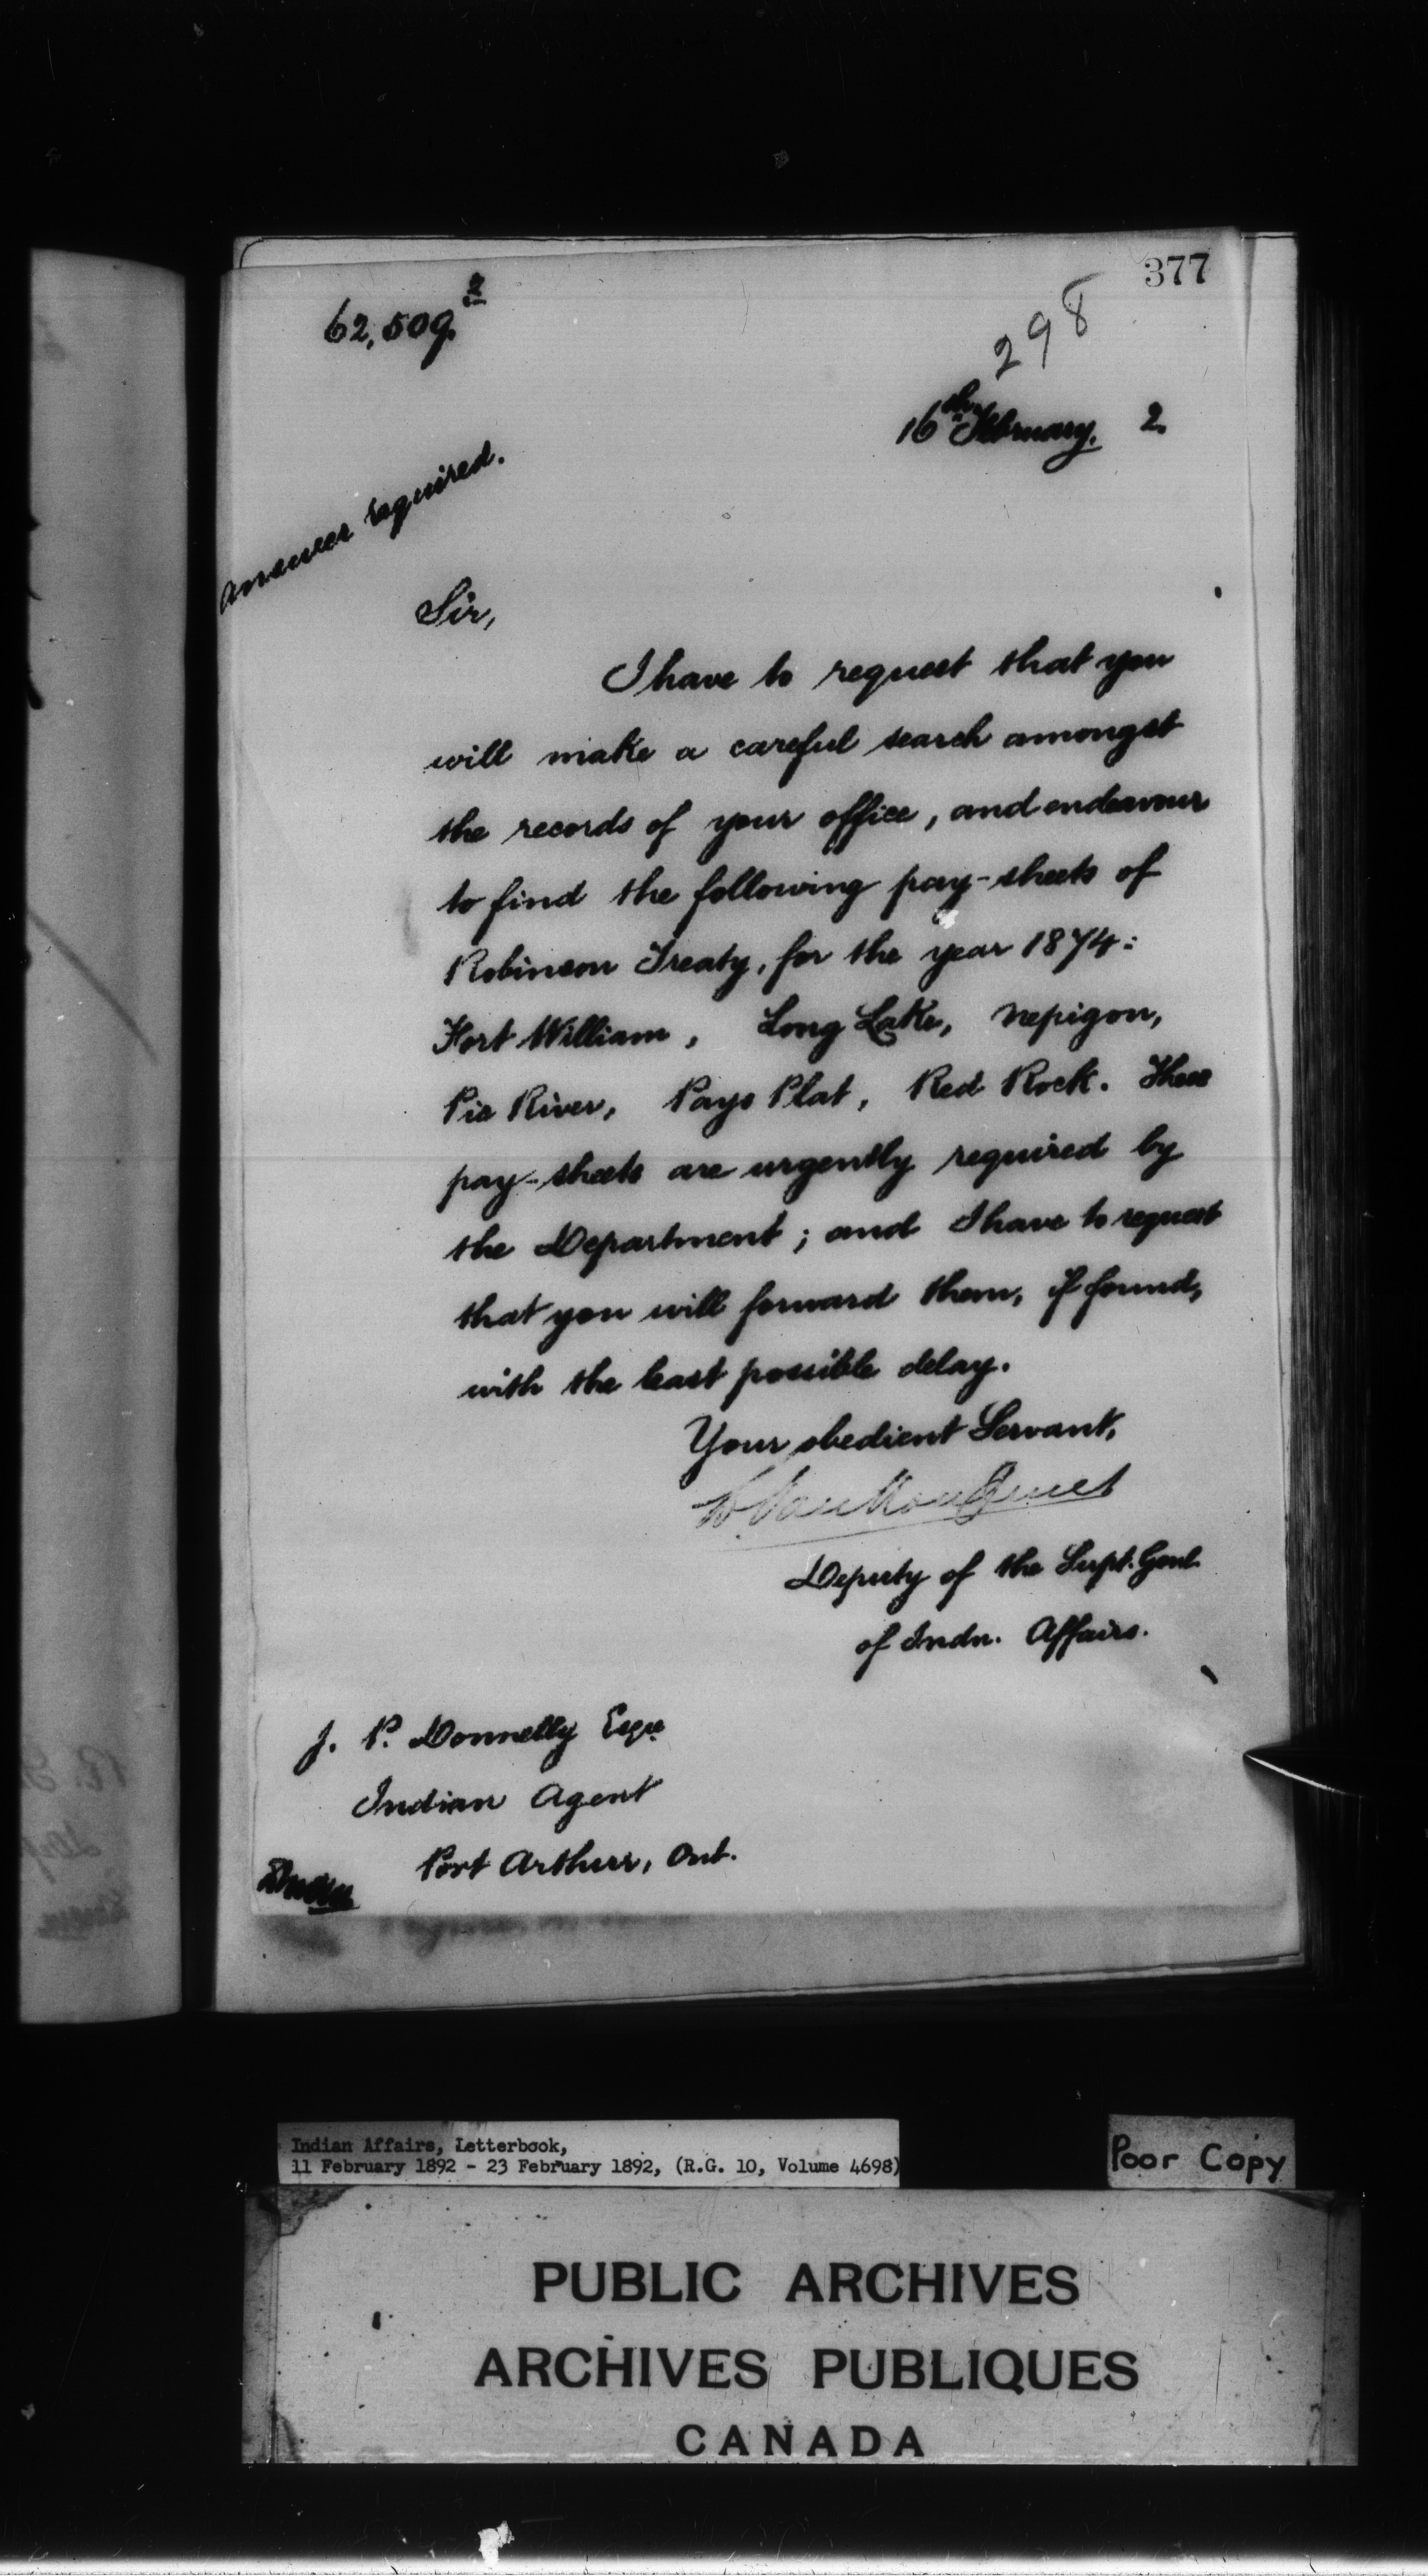 377
62,509.2
298
16th February. 2.
Answer required.
Sir,
I have to request that you
will make a careful search amongst
the records of your office, and endeavour
to find the following pay-sheets of
Robinson Treaty, for the year 1874:
Fort William, Long Lake, Nepigon,
Pic River, Pays Plat, Red Rock. These
pay-sheets are urgently required by
the Department; and I have to request
that you will forward them, if found,
with the least possible delay.
Your obedient Servant,
L. VanKoughnet
Deputy of the Supt. Genl.
of Indn. Affairs.
J. P. Donnelly Esqre
Indian Agent
Port Arthur, Ont.
Indian Affairs, Letterbook,
11 February 1892 - 23 February 1892, (R.G. 10, Volume 4698)
Poor Copy
PUBLIC ARCHIVES
ARCHIVES PUBLIQUES
CANADA